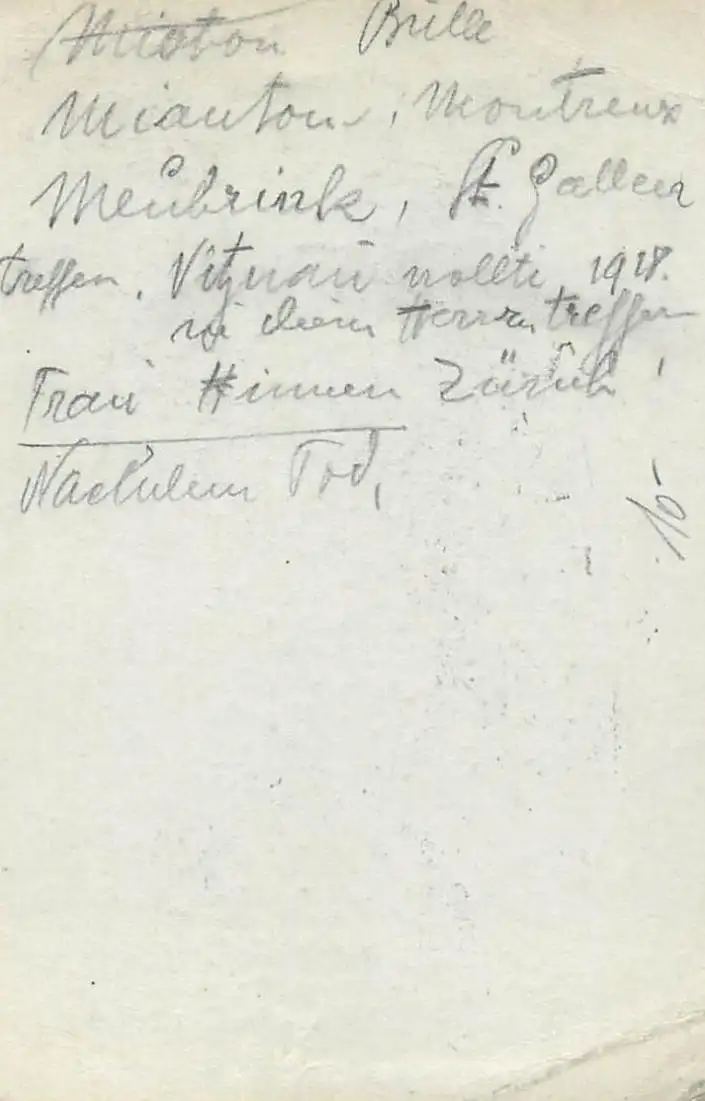 Miaton Brille
Mianton, Montreux
Meubrink, St. Gallen
treffen. Vitznau wollte 1918.
wi dein Herrn treffen
Frau Hinnen Zürich
Nachdem Tod,
10-